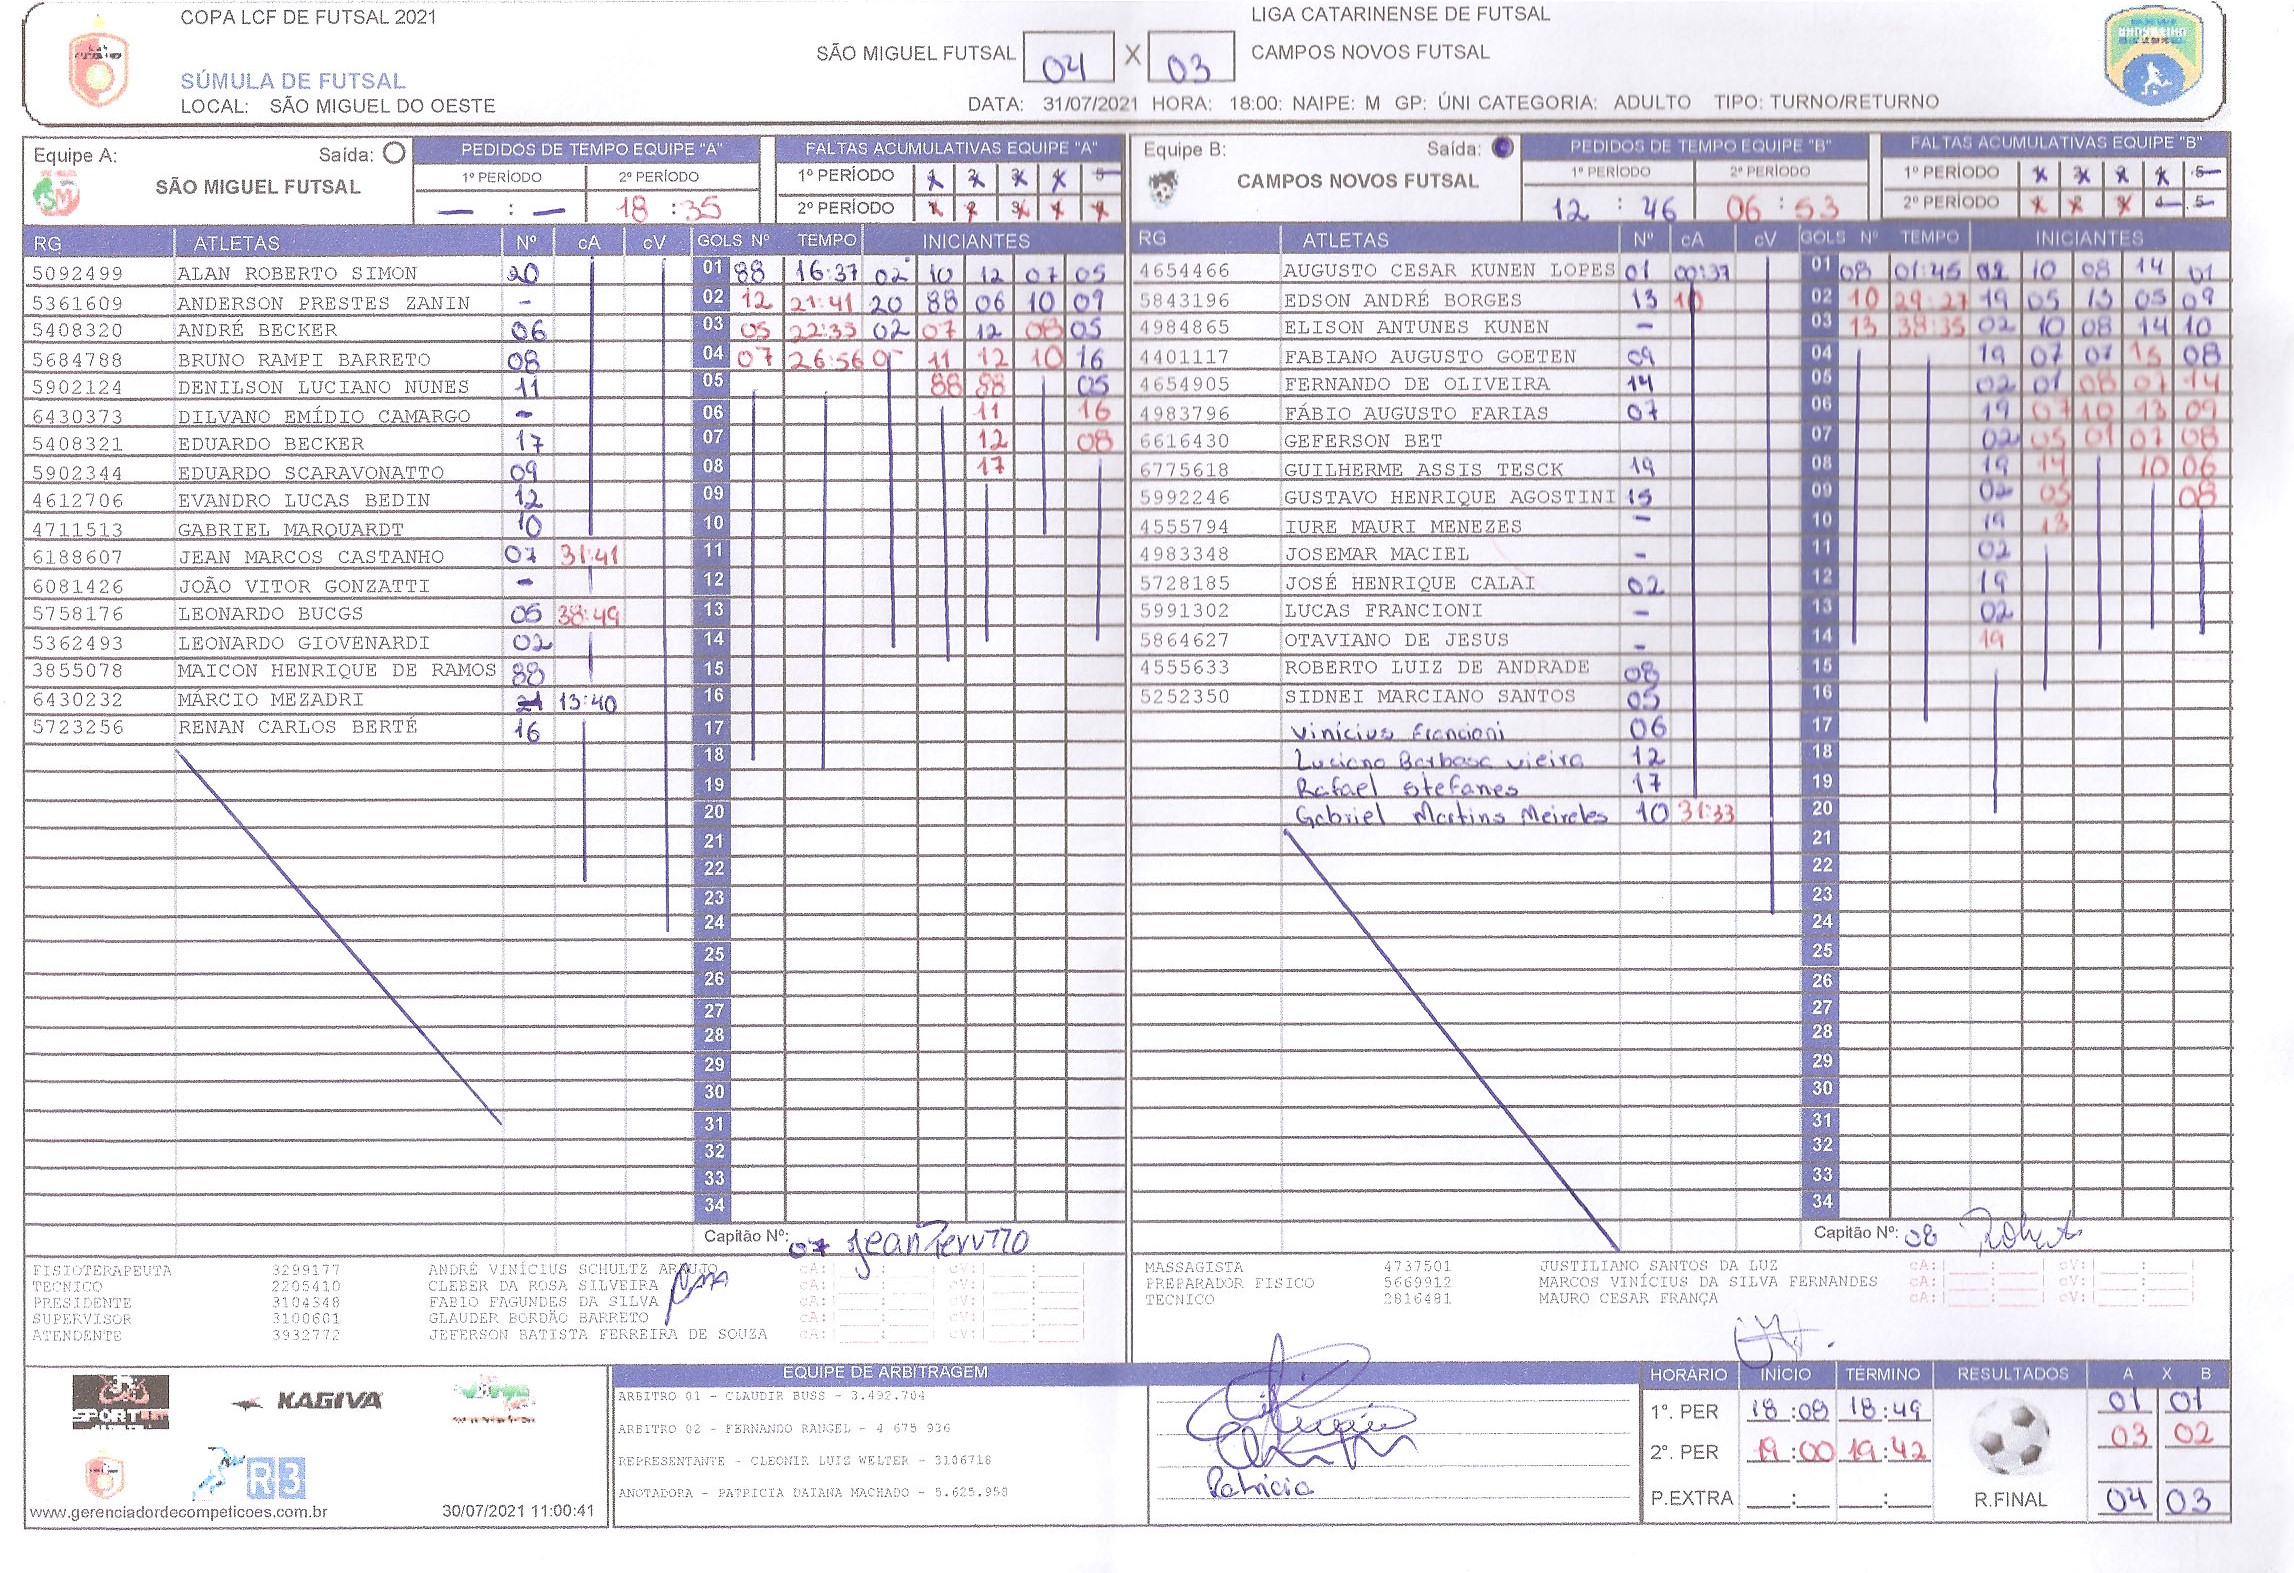 COPA LCF DE FUTSAL 2021
LIGA CATARINENSE DE FUTSAL
SÃO MIGUEL FUTSAL 04 X 03 CAMPOS NOVOS FUTSAL
SÚMULA DE FUTSAL
LOCAL: SÃO MIGUEL DO OESTE
DATA: 31/07/2021 HORA: 18:00: NAIPE: M GP: ÚNI CATEGORIA: ADULTO TIPO: TURNO/RETURNO
Equipe A: Saída:
SÃO MIGUEL FUTSAL
PEDIDOS DE TEMPO EQUIPE "A"
1º PERÍODO 2º PERÍODO
— : — 18 : 35
FALTAS ACUMULATIVAS EQUIPE "A"
1º PERÍODO 1 2 3 4 5
2º PERÍODO 1 2 3 4 5
RG ATLETAS Nº cA cV GOLS Nº TEMPO INICIANTES
5092499 ALAN ROBERTO SIMON 20 01 88 16:37 02 10 12 07 05
5361609 ANDERSON PRESTES ZANIN - 02 12 21:41 20 88 06 10 09
5408320 ANDRÉ BECKER 06 03 05 22:35 02 07 12 08 05
5684788 BRUNO RAMPI BARRETO 08 04 07 26:56 11 12 10 16
5902124 DENILSON LUCIANO NUNES 11 05 88 88 05
6430373 DILVANO EMÍDIO CAMARGO - 06 11 16
5408321 EDUARDO BECKER 17 07 12 08
5902344 EDUARDO SCARAVONATTO 09 08 17
4612706 EVANDRO LUCAS BEDIN 12 09
4711513 GABRIEL MARQUARDT 10 10
6188607 JEAN MARCOS CASTANHO 07 31:41 11
6081426 JOÃO VITOR GONZATTI - 12
5758176 LEONARDO BUCGS 05 38:49 13
5362493 LEONARDO GIOVENARDI 02 14
3855078 MAICON HENRIQUE DE RAMOS 88 15
6430232 MÁRCIO MEZADRI 21 13:40 16
5723256 RENAN CARLOS BERTÉ 16 17
18
19
20
21
22
23
24
25
26
27
28
29
30
31
32
33
34
Capitão Nº: 07
FISIOTERAPEUTA 3299177 ANDRÉ VINÍCIUS SCHULTZ ARAUJO cA: cV:
TECNICO 2205410 CLEBER DA ROSA SILVEIRA cA: cV:
PRESIDENTE 3104348 FABIO FAGUNDES DA SILVA cA: cV:
SUPERVISOR 3100601 GLAUDER BORDÃO BARRETO cA: cV:
ATENDENTE 3932772 JEFERSON BATISTA FERREIRA DE SOUZA cA: cV:
Equipe B: Saída:
CAMPOS NOVOS FUTSAL
PEDIDOS DE TEMPO EQUIPE "B"
1º PERÍODO 2º PERÍODO
12 : 46 06 : 53
FALTAS ACUMULATIVAS EQUIPE "B"
1º PERÍODO 1 2 3 4 5
2º PERÍODO 1 2 3 4 5
RG ATLETAS Nº cA cV GOLS Nº TEMPO INICIANTES
4654466 AUGUSTO CESAR KUNEN LOPES 01 00:37 01 08 01:45 02 10 08 14 01
5843196 EDSON ANDRÉ BORGES 13 10 02 10 29:27 19 05 13 05 09
4984865 ELISON ANTUNES KUNEN - 03 13 38:35 02 10 08 14 10
4401117 FABIANO AUGUSTO GOETEN 09 04 19 07 07 15 08
4654905 FERNANDO DE OLIVEIRA 14 05 02 01 08 07 14
4983796 FÁBIO AUGUSTO FARIAS 07 06 19 07 10 13 09
6616430 GEFERSON BET 07 02 05 01 07 08
6775618 GUILHERME ASSIS TESCK 19 08 19 14 10 06
5992246 GUSTAVO HENRIQUE AGOSTINI 15 09 02 05 08
4555794 IURE MAURI MENEZES - 10 19 13
4983348 JOSEMAR MACIEL - 11 02
5728185 JOSÉ HENRIQUE CALAI 02 12 19
5991302 LUCAS FRANCIONI - 13 02
5864627 OTAVIANO DE JESUS - 14 19
4555633 ROBERTO LUIZ DE ANDRADE 08 15
5252350 SIDNEI MARCIANO SANTOS 05 16
Vinícius Francioni 06 17
Luciano Barbosa Vieira 12 18
Rafael Stefanes 17 19
Gabriel Martins Meireles 10 31:33 20
21
22
23
24
25
26
27
28
29
30
31
32
33
34
Capitão Nº: 08
MASSAGISTA 4737501 JUSTILIANO SANTOS DA LUZ cA: cV:
PREPARADOR FISICO 5669912 MARCOS VINÍCIUS DA SILVA FERNANDES cA: cV:
TECNICO 2816481 MAURO CESAR FRANÇA cA: cV:
KAGIVA
R3
www.gerenciadordecompeticoes.com.br 30/07/2021 11:00:41
EQUIPE DE ARBITRAGEM
ARBITRO 01 - CLAUDIR BUSS - 3.492.704
ARBITRO 02 - FERNANDO RANGEL - 4 675 936
REPRESENTANTE - CLEONIR LUIZ WELTER - 3106718
ANOTADORA - PATRICIA DAIANA MACHADO - 5.625.958
Patricia
HORÁRIO INÍCIO TÉRMINO RESULTADOS A X B
1º. PER 18:08 18:49 01 01
2º. PER 19:00 19:42 03 02
P.EXTRA __:__ __:__ R.FINAL 04 03